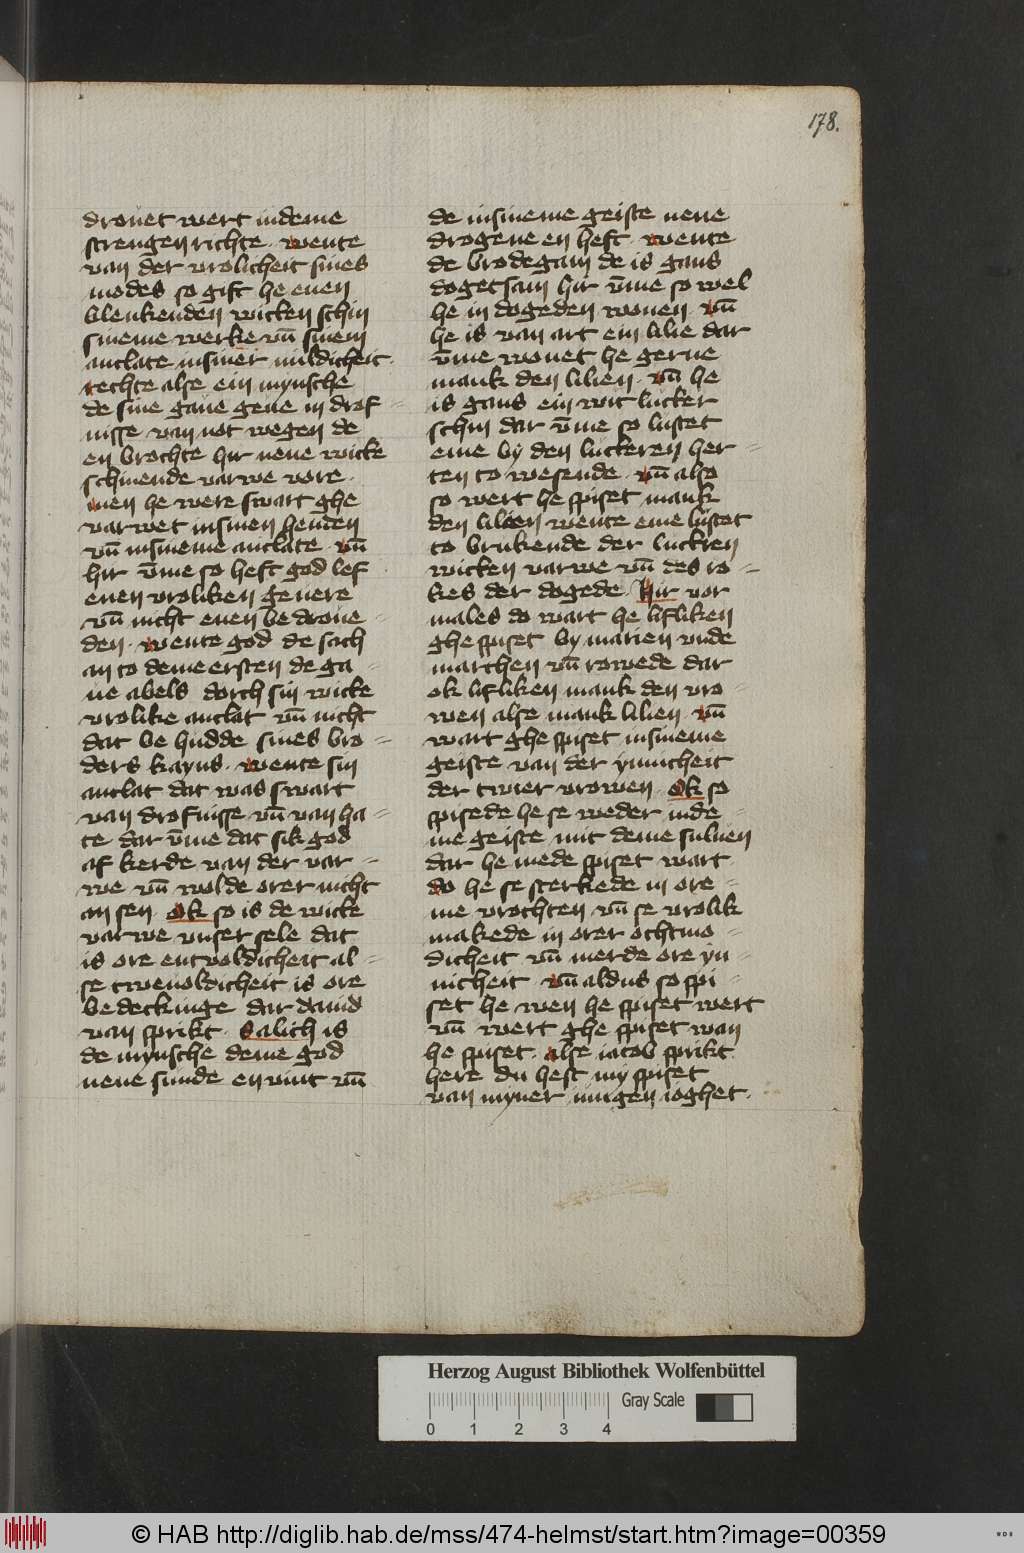 178.
drouet wert in deme
strengen richte · wente
van der vrolicheit sines
modes so gift he enen
blenkenden witten schin
sineme werke vn̄ sinem
antlate in siner mildicheit ·
rechte alse ein mynsche
de sine gaue geue in drof
nisse van not wegen de
en brochte hir nene witte
schinende varwe vore ·
men he were swart ghe
varwet in sinen henden
vn̄ in sineme antlate · vn̄
hir v̄me so heft god lef
enen vroliken geuere
vn̄ nicht enen be droue =
den · wente god de sach
an to deme ersten de ga =
ue abels dorch sin witte
vrolike antlat vn̄ nicht
dat be hudde sines bro =
ders kayns · wente sin
antlat dat was swart
van drofnisse vn̄ van ha =
te dar v̄me dat sik god
af kerde van der var =
we vn̄ wolde orer nicht
an sen · Ok so is de witte
varwe vnser sele dat
is ore entvoldicheit al =
se tweuoldicheit is ore
be deckinge dar dauid
van sprikt · Salich is
de mynsche deme god
nene sunde en vint vn̄
de in sineme geiste nene
drogene en heft · wente
de brodegam de is gans
dogetsam hir v̄me so wel
he in dogeden wonen · vn̄
he is van art ein lilie dar
v̄me wonet he gerne
mank den lilien · vn̄ he
is gans ein wit lucter
schin dar v̄me so lustet
eme by den luckeren her =
ten to wesende · vn̄ also
so wert he spiset mank
den lilien wente eme lustet
to brukende der luctren
witten varwe vn̄ des ro =
kes der dogede · Hir vor
males do wart he lifliken
ghe spiset by marien vnde
marthen vn̄ rowede dar
ok lifliken mank den vro =
wen alse mank lilien · vn̄
wart ghe spiset in sineme
geiste van der ynnicheit
der twier vrowen · Ok so
spisede he se weder in de =
me geiste mit deme suluen
dar he mede spiset wart
do he se sterkede in ore =
me vrochten vn̄ se vrolik
makede in orer othmo =
dicheit vn̄ merde ore yn =
nicheit · vn̄ aldus so spi =
set he wen he spiset wert
vn̄ wert ghe spiset wan
he spiset · alse iacob sprikt
here du hest my spiset
van myner iungen ioghet ·
Herzog August Bibliothek Wolfenbüttel
Gray Scale
0 1 2 3 4
© HAB http://diglib.hab.de/mss/474-helmst/start.htm?image=00359